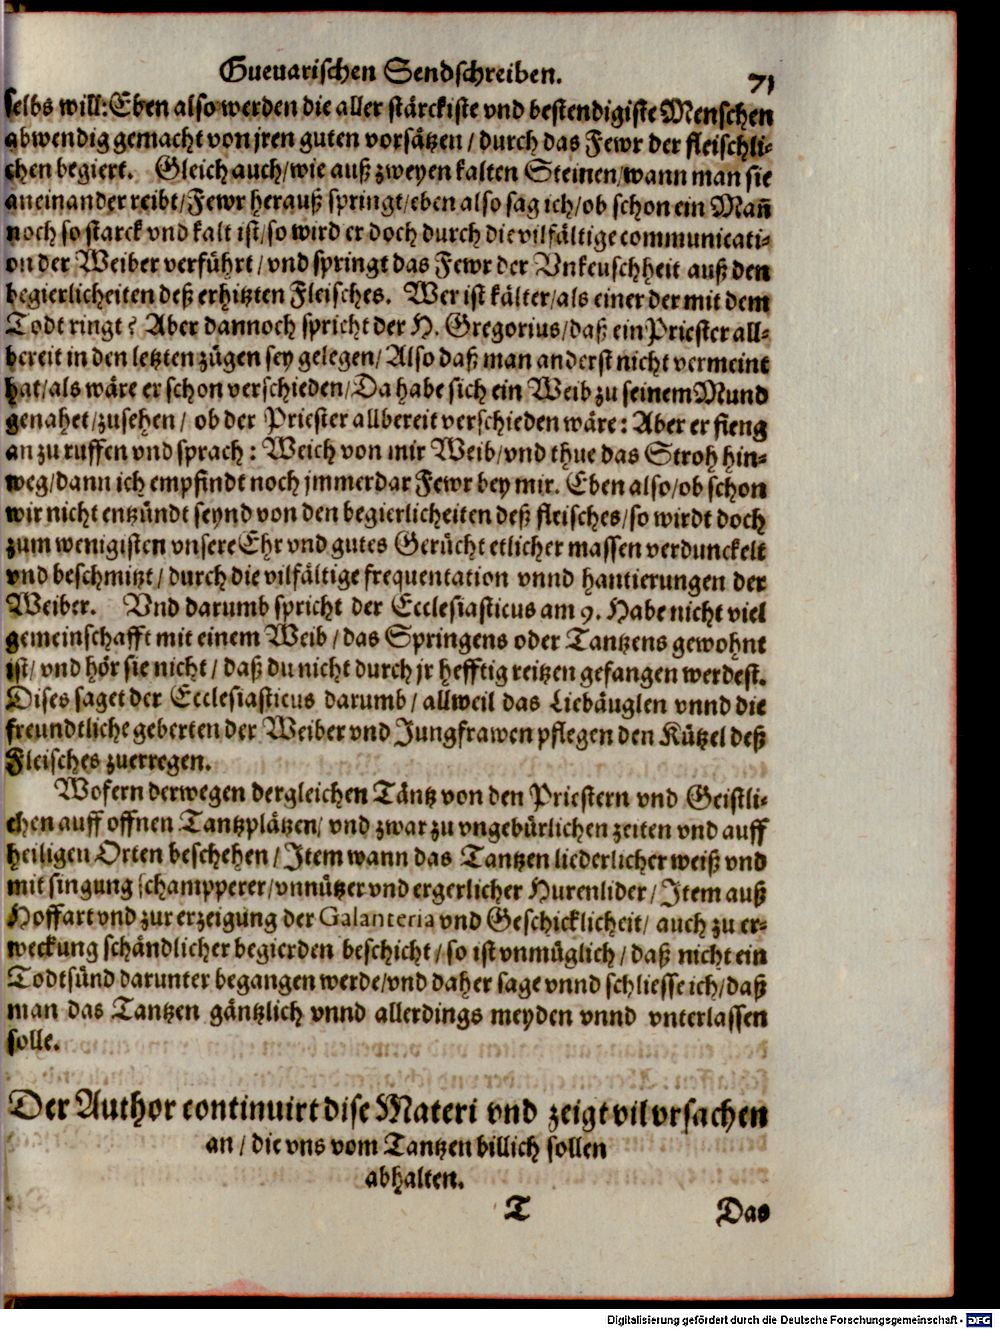 Gueuarischen Sendschreiben. 71
selbs will: Eben also werden die aller stärckiste vnd bestendigiste Menschen
abwendig gemacht von jren guten vorsätzen / durch das Fewr der fleischli-
chen begiert. Gleich auch / wie auß zweyen kalten Steinen / wann man sie
aneinander reibt / Fewr herauß springt / eben also sag ich / ob schon ein Mañ
noch so starck vnd kalt ist / so wird er doch durch die vilfältige communicati-
on der Weiber verführt / vnd springt das Fewr der Vnkeuschheit auß den
begierlicheiten deß erhitzten Fleisches. Wer ist kälter / als einer der mit dem
Todt ringt? Aber dannoch spricht der H. Gregorius / daß ein Priester all-
bereit in den letzten zügen sey gelegen / Also daß man anderst nicht vermeint
hat / als wäre er schon verschieden / Da habe sich ein Weib zu seinem Mund
genahet / zusehen / ob der Priester allbereit verschieden wäre: Aber er fieng
an zu ruffen vnd sprach: Weich von mir Weib / vnd thue das Stroh hin-
weg / dann ich empfindt noch jmmerdar Fewr bey mir. Eben also / ob schon
wir nicht entzündt seynd von den begierlicheiten deß fleisches / so wirdt doch
zum wenigisten vnsere Ehr vnd gutes Gerücht etlicher massen verdunckelt
vnd beschmitzt / durch die vilfältige frequentation vnnd hantierungen der
Weiber. Vnd darumb spricht der Ecclesiasticus am 9. Habe nicht viel
gemeinschafft mit einem Weib / das Springens oder Tantzens gewohnt
ist / vnd hör sie nicht / daß du nicht durch jr hefftig reitzen gefangen werdest.
Dises saget der Ecclesiasticus darumb / allweil das Liebäuglen vnnd die
freundtliche geberten der Weiber vnd Jungfrawen pflegen den Kützel deß
Fleisches zuerregen.
Wofern derwegen dergleichen Täntz von den Priestern vnd Geistli-
chen auff offnen Tantzplätzen / vnd zwar zu vngebürlichen zeiten vnd auff
heiligen Orten beschehen / Item wann das Tantzen liederlicher weiß vnd
mit singung schampperer / vnnützer vnd ergerlicher Hurenlider / Item auß
Hoffart vnd zur erzeigung der Galanteria vnd Geschicklicheit / auch zu er-
weckung schändlicher begierden beschicht / so ist vnmüglich / daß nicht ein
Todtsünd darunter begangen werde / vnd daher sage vnnd schliesse ich / daß
man das Tantzen gäntzlich vnnd allerdings meyden vnnd vnterlassen
solle.
Der Author continuirt dise Materi vnd zeigt vil vrsachen
an / die vns vom Tantzen billich sollen
abhalten.
T Das
Digitalisierung gefördert durch die Deutsche Forschungsgemeinschaft - DFG